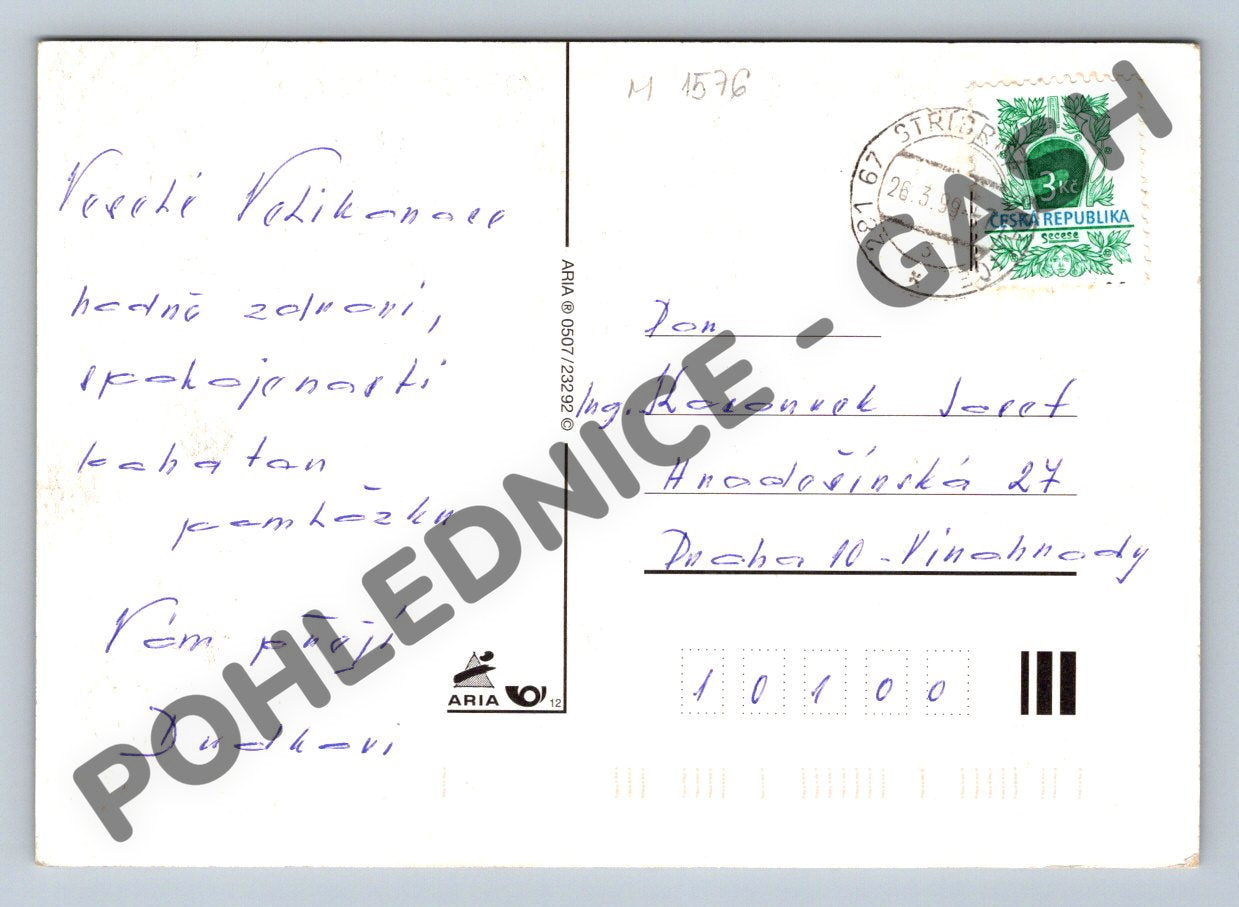 Veselé Velikonoce
hodně zdraví,
spokojenosti
bohatou
pomlázku
Vám přejí
M 1576
281 67 STŘÍBR CE
26.3.99
3 Kč
ČESKÁ REPUBLIKA
Secese
ARIA ® 0507/23292 ©
Pan
Ing. Josef
Hradešínská 27
Praha 10 - Vinohrady
1 0 1 0 0
ARIA
12
POHLEDNICE - GASH